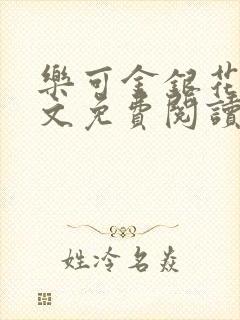 樂可金銀花
文免費閱讀
姓冷名焱